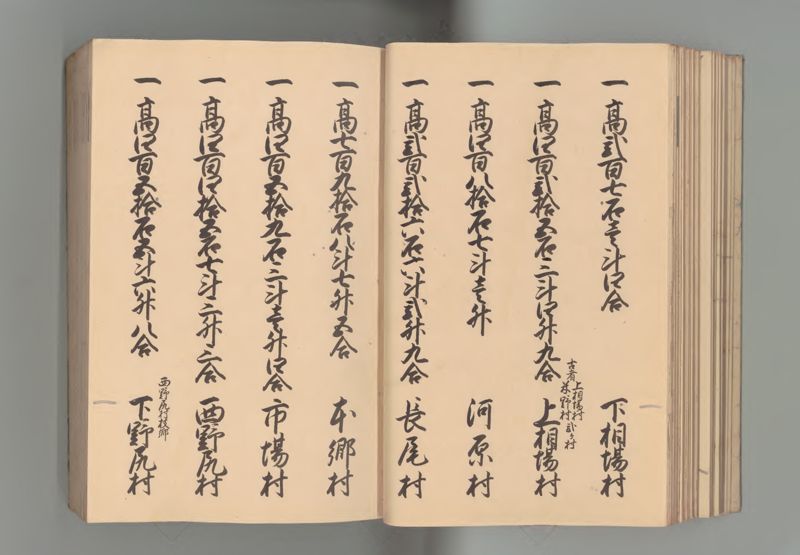 一 高弐百七石壱斗四合 下相場村
一 高四百弐拾五石三斗四升九合 上相場村
古者上相場村
米野村弐ヶ村
一 高四百八拾石七斗壱升 河原村
一 高弐百弐拾六石六斗弐升九合 長尾村
一 高七百九拾石八斗七升五合 本郷村
一 高四百五拾九石三斗壱升四合 市場村
一 高四百四拾五石七斗三升三合 西野尻村
一 高四百五拾石五斗六升八合 下野尻村
西野尻村枝郷